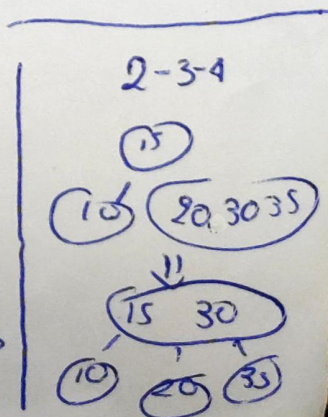 2-3-4
15
10 20,30 35
15 30
10 20 35